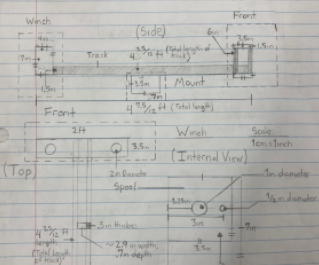 Winch
(Side)
Front
6in
2.5in
1.5in
4 3.5/12 ft (Total length of track)
Track
7in
3.5in
Mount
1.5in
4 7.5/12 ft (Total length)
Front
2ft
Winch
Scale
1cm = 1inch
(Internal View)
(Top)
3.5in
2in Diameter
1in diameter
Spool
1/2in diameter
1.25in
3in
7in
3in thicker
~2.9 in width,
.7in depth
4 3.5/12 ft
length
(Total length
of track)